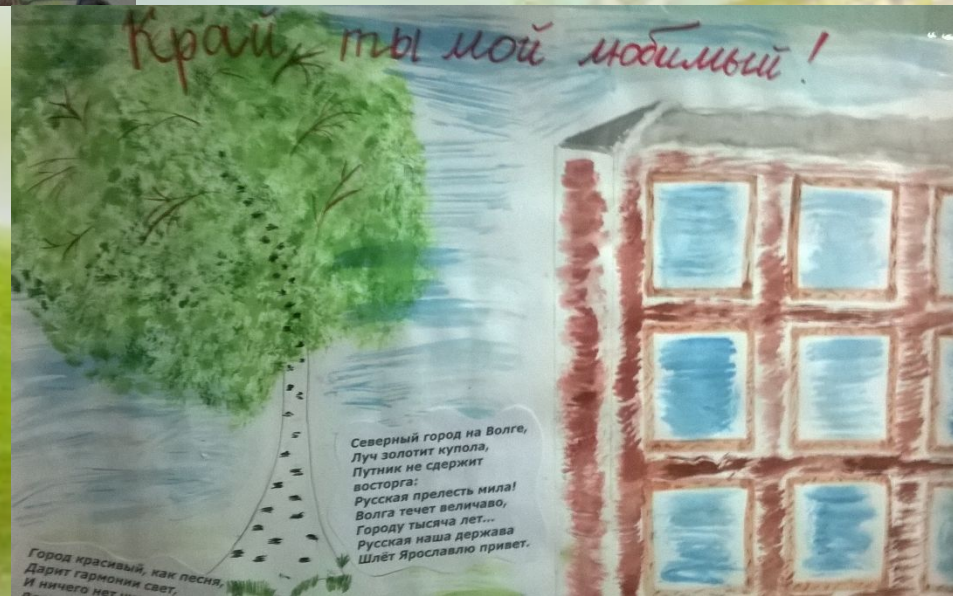 Край, ты мой любимый!
Северный город на Волге,
Луч золотит купола,
Путник не сдержит
восторга:
Русская прелесть мила!
Волга течет величаво,
Городу тысяча лет...
Русская наша держава
Шлёт Ярославлю привет.
Город красивый, как песня,
Дарит гармонии свет,
И ничего нет